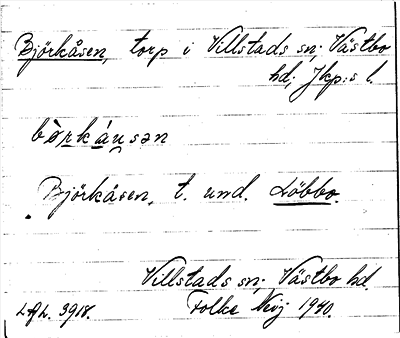 Björkåsen, torp i Villstads sn; Västbo
hd; Jkp:s l.
bò̱rkáu̯sən
Björkåsen, t. und. Löbbo.
Villstads sn; Västbo hd.
LAL. 3918. Folke Neij 1940.